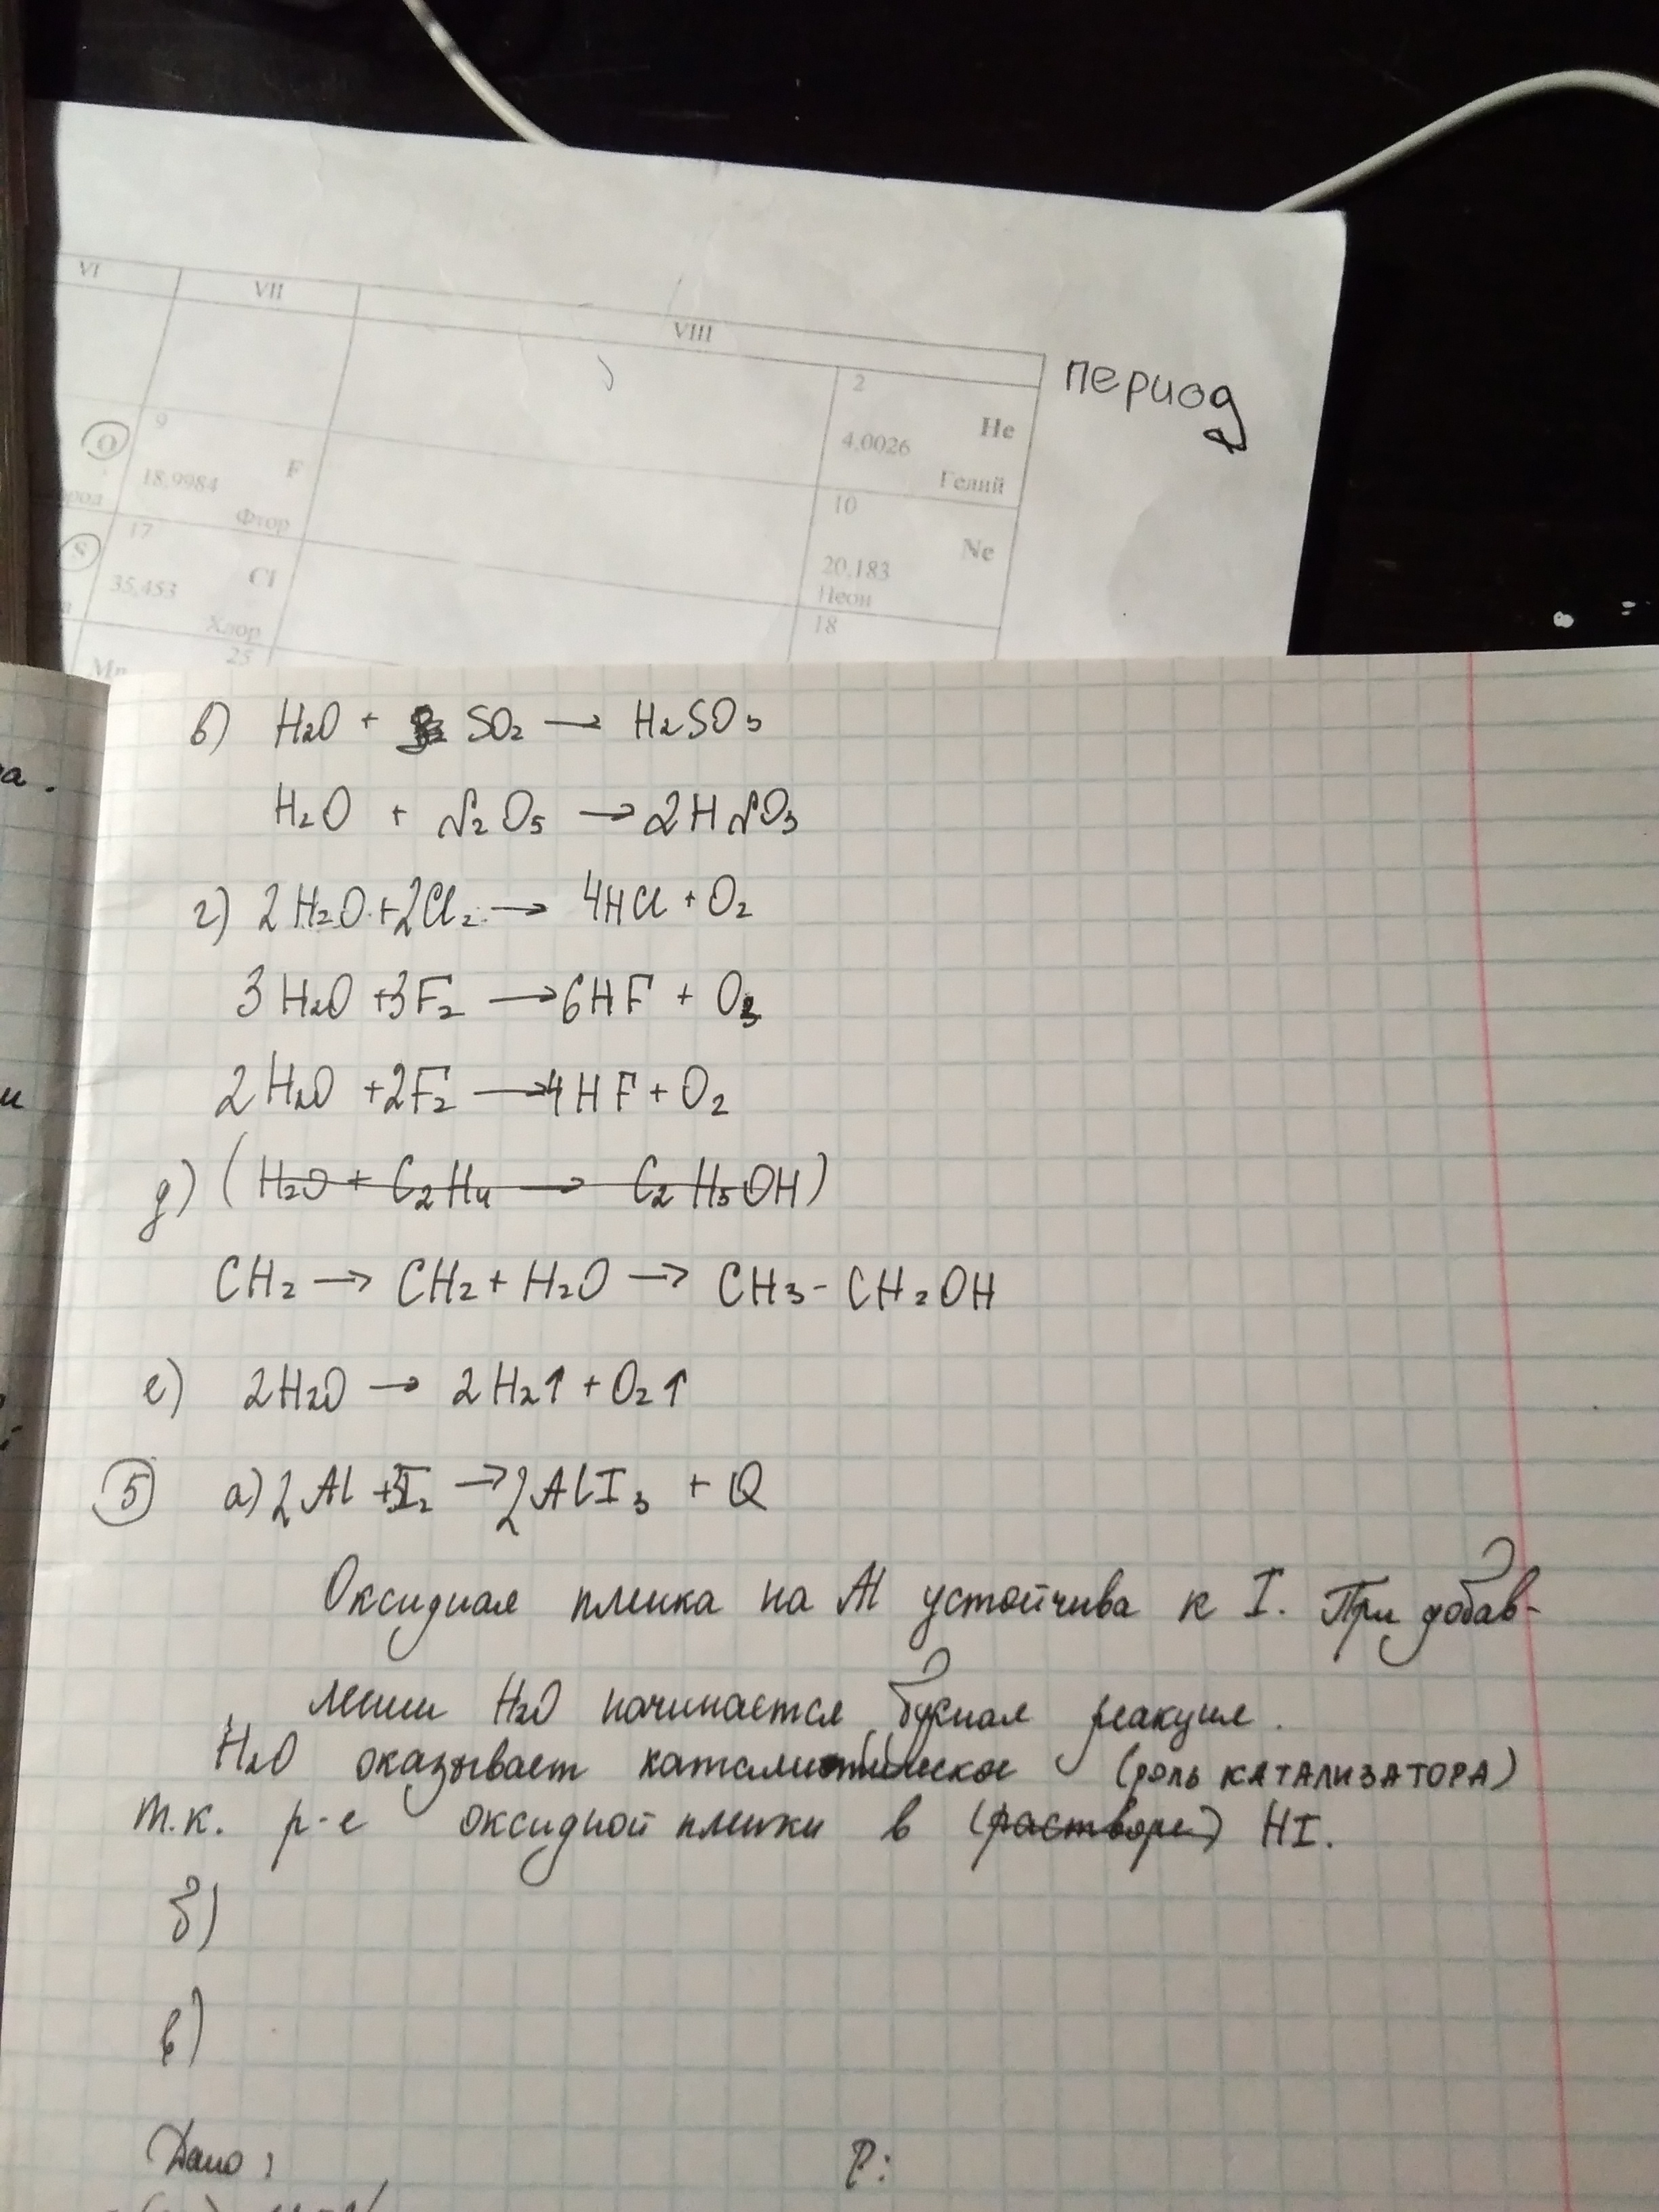 VI VII VIII
период
2
He
4,0026
Гелий
9
O
F
18,9984
Фтор
10
Ne
20,183
Неон
17
S
Cl
35,453
Хлор
18
25
Mn
в) H₂O + SO₂ → H₂SO₃
H₂O + N₂O₅ → 2HNO₃
г) 2H₂O + 2Cl₂ → 4HCl + O₂
3H₂O + 3F₂ → 6HF + O₃
2H₂O + 2F₂ → 4HF + O₂
д) (H₂O + C₂H₄ → C₂H₅OH)
CH₂ → CH₂ + H₂O → CH₃ - CH₂OH
е) 2H₂O → 2H₂↑ + O₂↑
5 а) 2Al + 3I₂ → 2AlI₃ + Q
Оксидная пленка на Al устойчива к I. При добав-
лении H₂O начинается бурная реакция.
H₂O оказывает каталитическое (роль КАТАЛИЗАТОРА)
т.к. р-е оксидной пленки в (растворе) HI.
б)
в)
Дано:
Р: